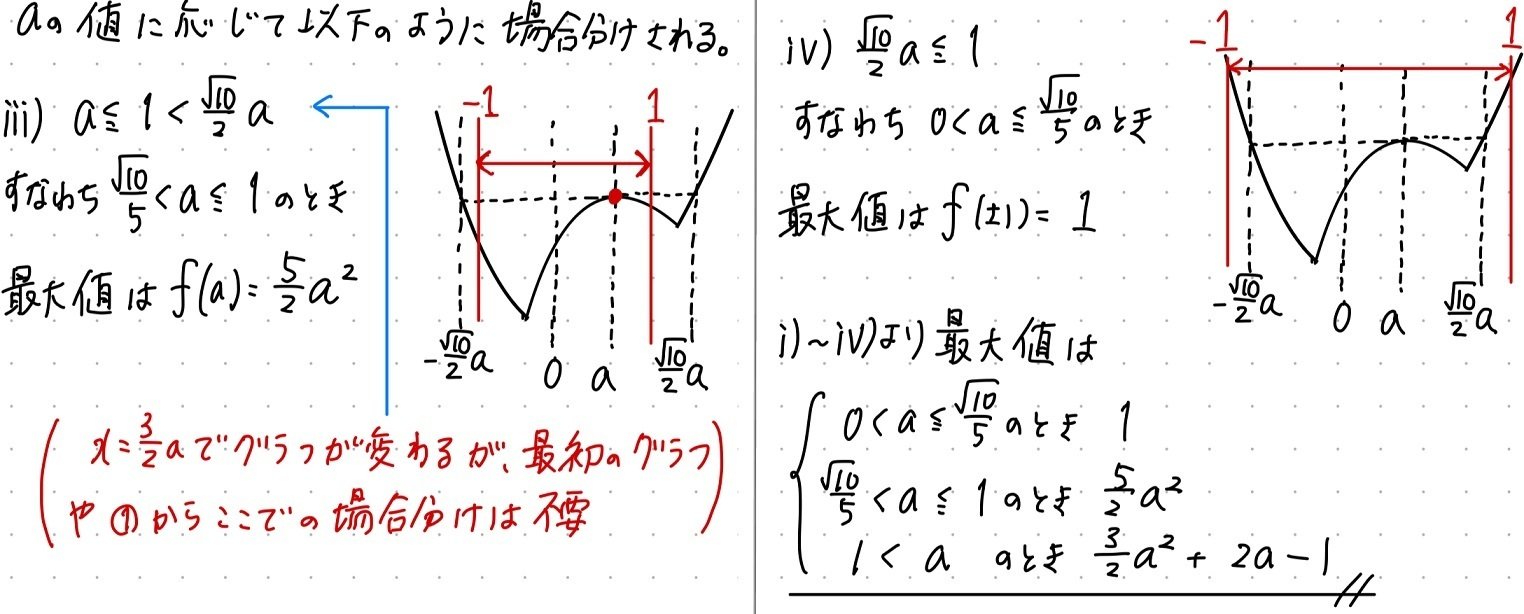 aの値に応じて以下のように場合分けされる。
iii) a≦1<√10/2 a
すなわち √10/5<a≦1のとき
最大値は f(a)=5/2 a²
-1 1
-√10/2 a 0 a √10/2 a
(x=3/2 aでグラフが変わるが、最初のグラフ
や①からここでの場合分けは不要)
iv) √10/2 a≦1
すなわち 0<a≦√10/5のとき
最大値は f(±1)=1
-1 1
-√10/2 a 0 a √10/2 a
i)~iv)より最大値は
0<a≦√10/5のとき 1
√10/5<a≦1のとき 5/2 a²
1<a のとき 3/2 a²+2a-1